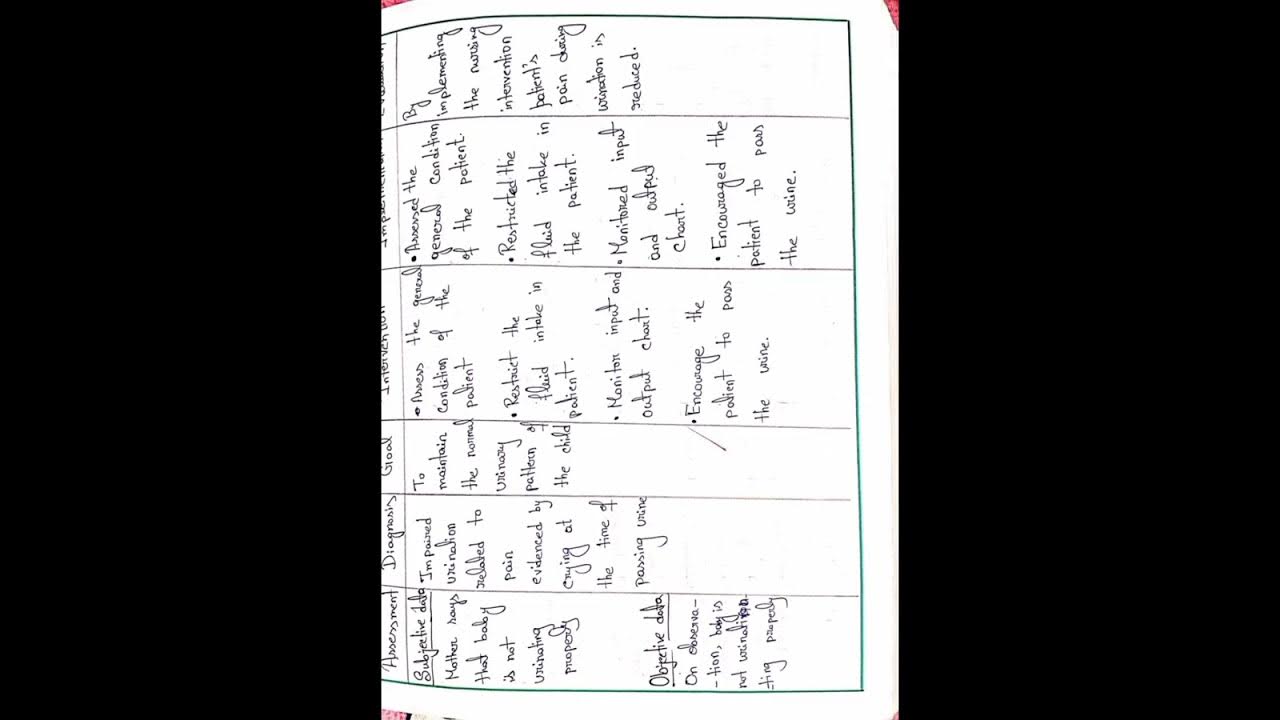 Assessment
Subjective data
Mother says
that baby
is not
urinating
properly
Objective data
On observa-
-tion, baby is
not
-ting properly
Diagnosis
Impaired
urination
related to
pain
evidenced by
crying at
the time of
passing urine
Goal
To
maintain
the normal
urinary
pattern of
the child
Intervention
• Assess the general
condition of the
patient
• Restrict the
fluid intake in
patient.
• Monitor input and
output chart.
• Encourage the
patient to pass
the urine.
• Assessed the
general condition
of the patient.
• Restricted the
fluid intake in
the patient.
• Monitored input
and output
chart.
• Encouraged the
patient to pass
the urine.
By
implementing
the nursing
intervention
patient's
pain during
urination is
reduced.